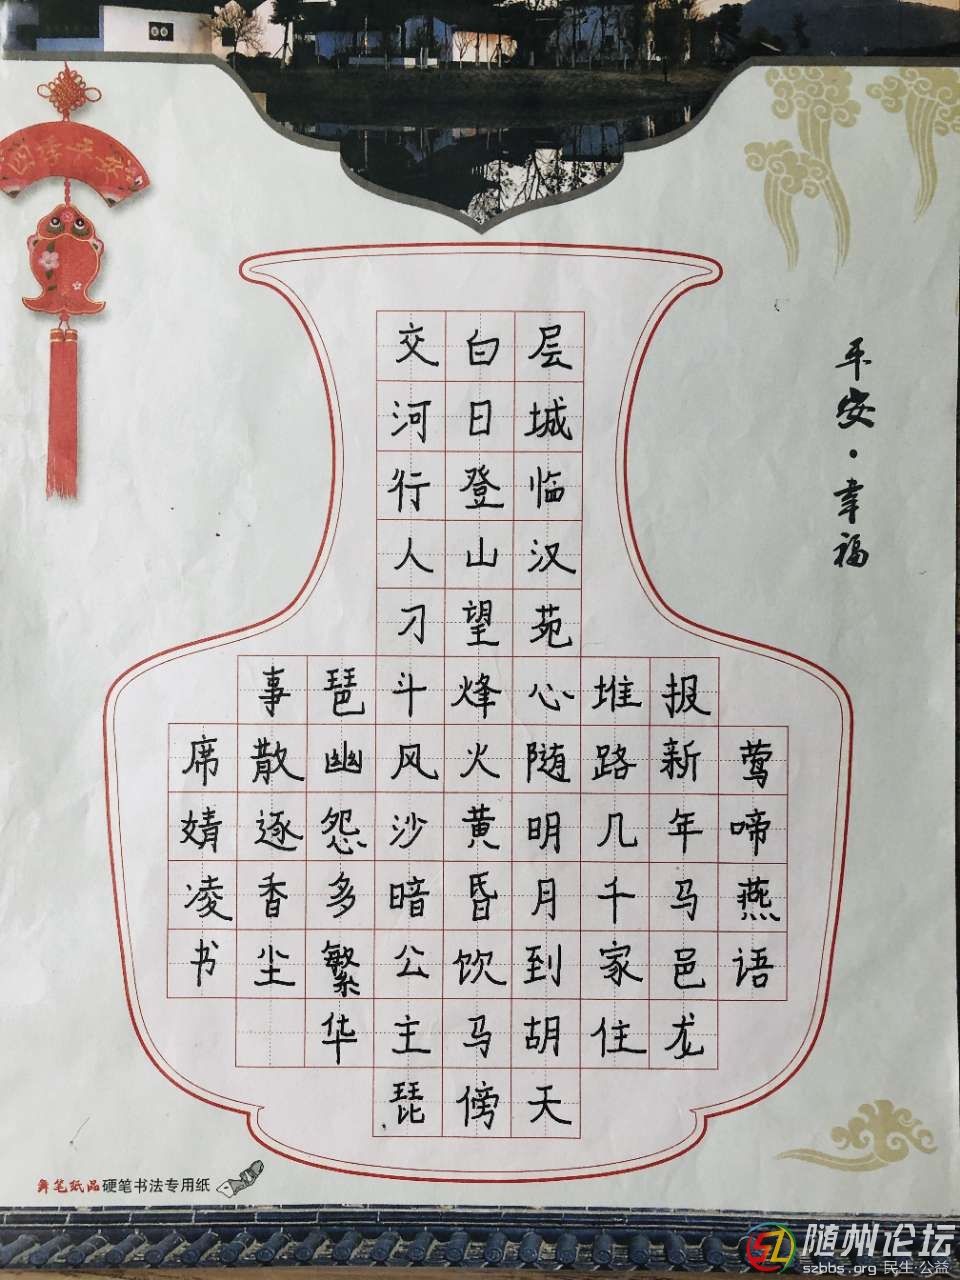 四季平安
平安·幸福
莺啼燕语
报新年马邑龙
堆路几千家住
层城临汉苑心随明月到胡天
白日登山望烽火黄昏饮马傍
交河行人刁斗风沙暗公主琵
琶幽怨多繁华
事散逐香尘
席婧凌书
笔纸品硬笔书法专用纸
随州论坛
szbbs.org 民生·公益